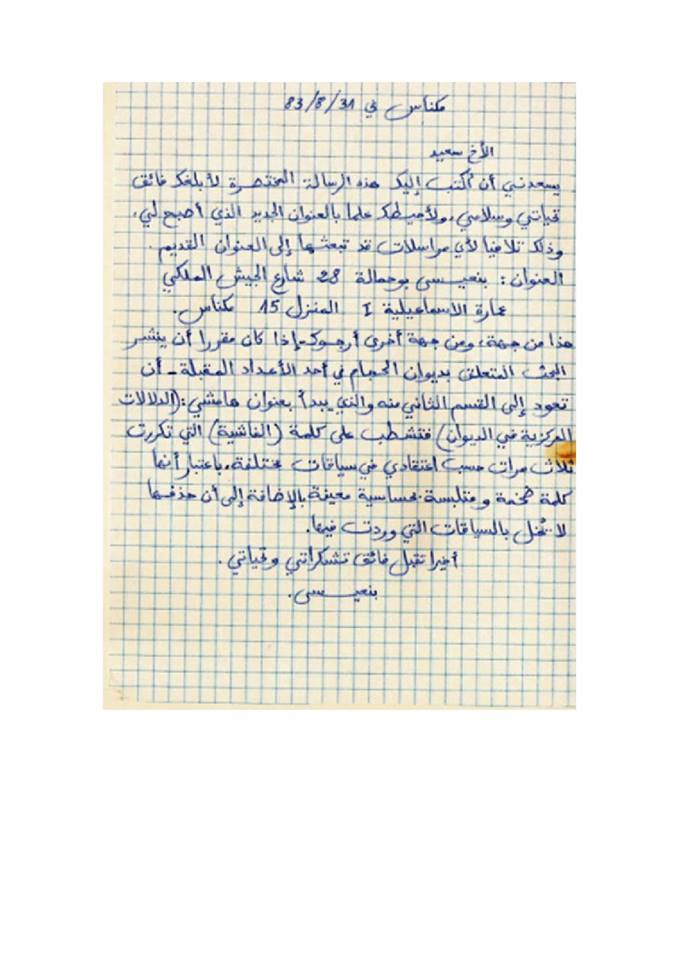 مكناس في 83/8/31
الأخ سعيد
يسعدني أن أكتب إليك هذه الرسالة المختصرة لأبلغك فائق
تحياتي وسلامي، ولأحيطك علما بالعنوان الجديد الذي أصبح لي،
وذلك تلافيا لأي مراسلات قد تبعثها إلى العنوان القديم.
العنوان: بنعيسى بوحمالة 28 شارع الجيش الملكي
عمارة الاسماعيلية I المنزل 15 مكناس.
هذا من جهة، ومن جهة أخرى أرجوك - إذا كان مقررا أن ينشر
البحث المتعلق بديوان الحجام في أحد الأعداد المقبلة - أن
تعود إلى القسم الثاني منه والذي يبدأ بعنوان هامشي: (الدلالات
المركزية في الديوان) فتشطب على كلمة (الفاشية) التي تكررت
ثلاث مرات حسب اعتقادي في سياقات مختلفة، باعتبار أنها
كلمة ضخمة ومتلبسة بحساسية معينة بالإضافة إلى أن حذفها
لا تخل بالسياقات التي وردت فيها.
أخيرا تقبل فائق تشكراتي وتحياتي.
بنعيسى.